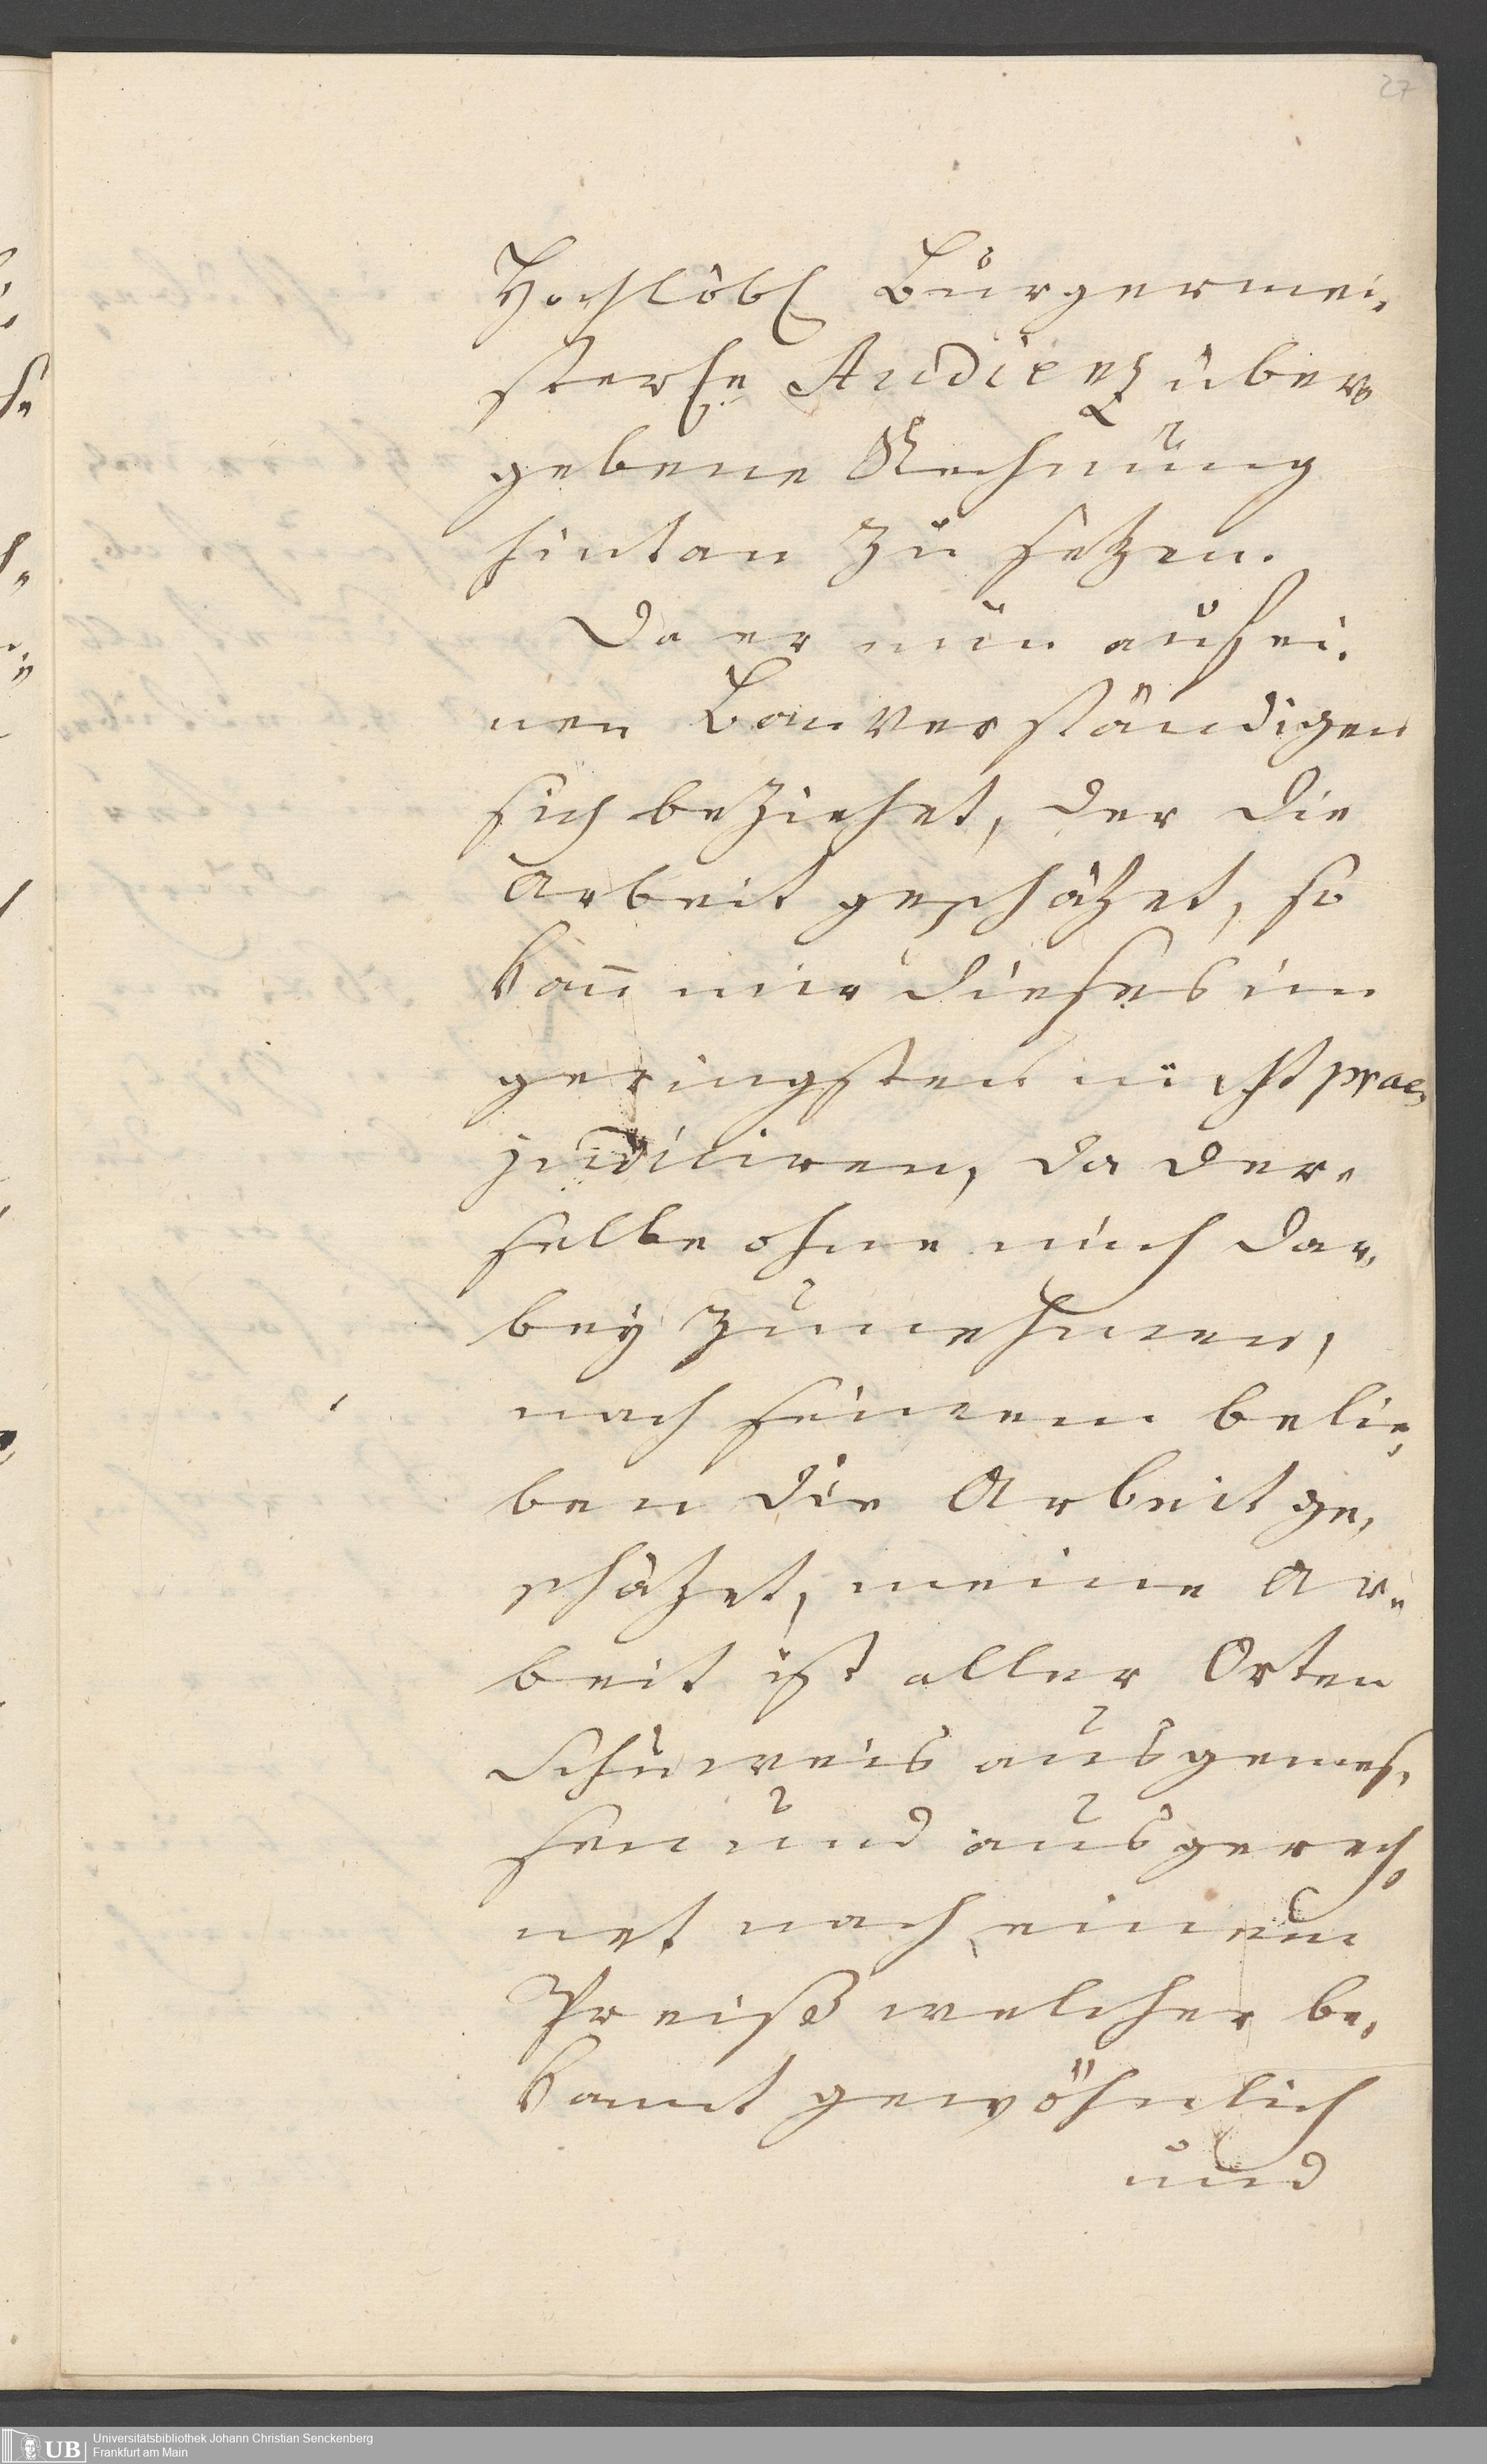 27
Hochlöbl Bürgermei,
sterl. Audienz über,
gebene Rechnung
hintan zu setzen.
Da er nun auf ei,
nen Bauverständigen
sich beziehet, der die
Arbeit geschätzet, so
kan̄ mir dieses im
geringsten nicht prae,
judiciren, da der,
selbe ohne mich dar,
bey zu nehmen,
nach seinem belie,
ben die Arbeit ge,
schätzet, meine Ar,
beit ist aller Orten
Schuweis ausgemes,
sen und ausgerech,
net nach einem
Preiß welcher be,
kant gewöhnlich
und
UB
Universitätsbibliothek Johann Christian Senckenberg
Frankfurt am Main